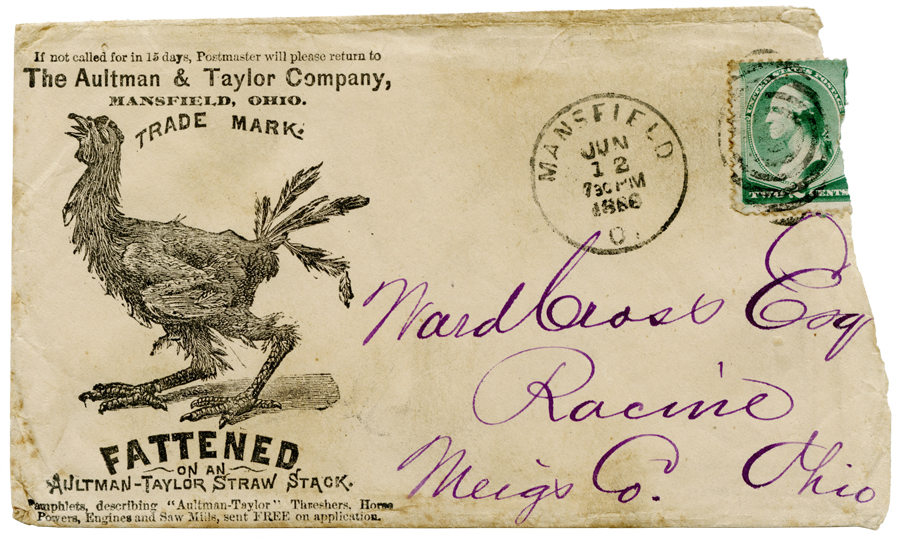 If not called for in 15 days, Postmaster will please return to
The Aultman & Taylor Company,
MANSFIELD, OHIO.
TRADE MARK.
FATTENED
ON AN
AULTMAN-TAYLOR STRAW STACK.
Pamphlets, describing "Aultman-Taylor" Threshers, Horse
Powers, Engines and Saw Mills, sent FREE on application.
MANSFIELD
JUN
12
730 PM
1886
O.
UNITED STATES POSTAGE
TWO CENTS
Ward Cross Esq
Racine
Meigs Co. Ohio